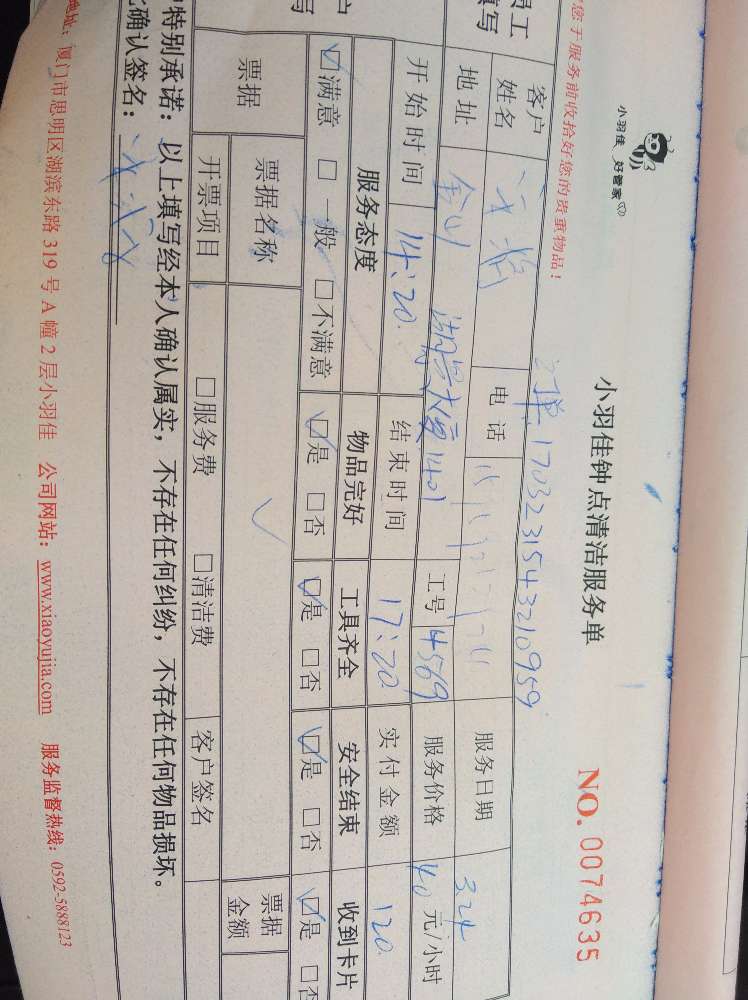 小羽佳 好管家
小羽佳钟点清洁服务单
NO. 0074635
您于服务前收拾好您的贵重物品!
订单1703231543210959
员工
填写
客户
姓名
电话
服务日期
3.24
地址
金山 湖景大厦1401
工号
4569
服务价格
40 元/小时
开始时间
14:20
结束时间
17:20
实付金额
120
户
写
服务态度
物品完好
工具齐全
安全结束
收到卡片
☑满意 □一般 □不满意
☑是 □否
☑是 □否
☑是 □否
☑是 □否
票据
票据名称
票据
金额
开票项目
□服务费 □清洁费
客户签名
特别承诺:以上填写经本人确认属实,不存在任何纠纷,不存在任何物品损坏。
确认签名:
地址:厦门市思明区湖滨东路 319 号 A 幢 2 层小羽佳 公司网站:www.xiaoyujia.com 服务监督热线:0592-5888123